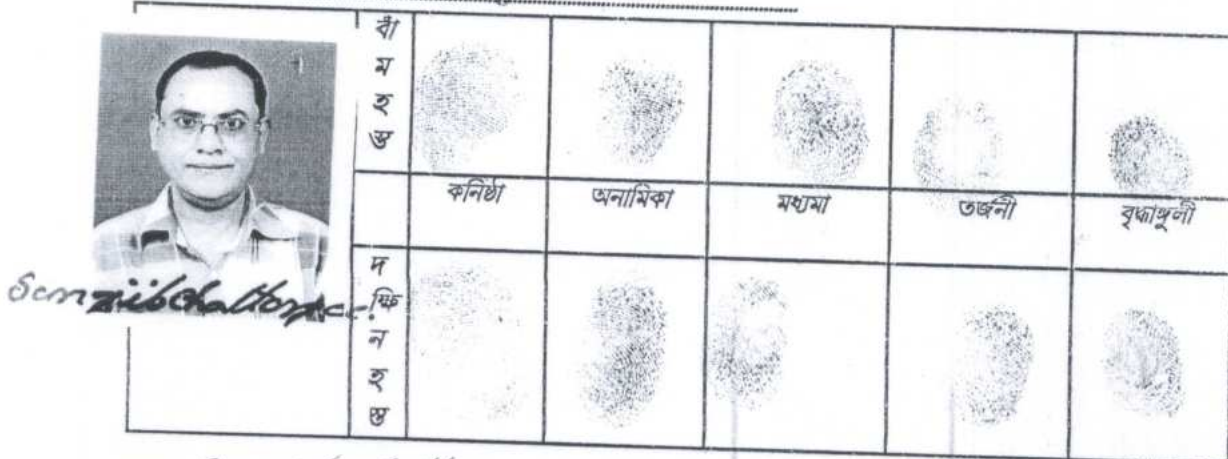 বাঁ
ম
হ
স্ত
কনিষ্ঠা
অনামিকা
মধ্যমা
তর্জনী
বৃদ্ধাঙ্গুলী
দ
ক্ষি
ন
হ
স্ত